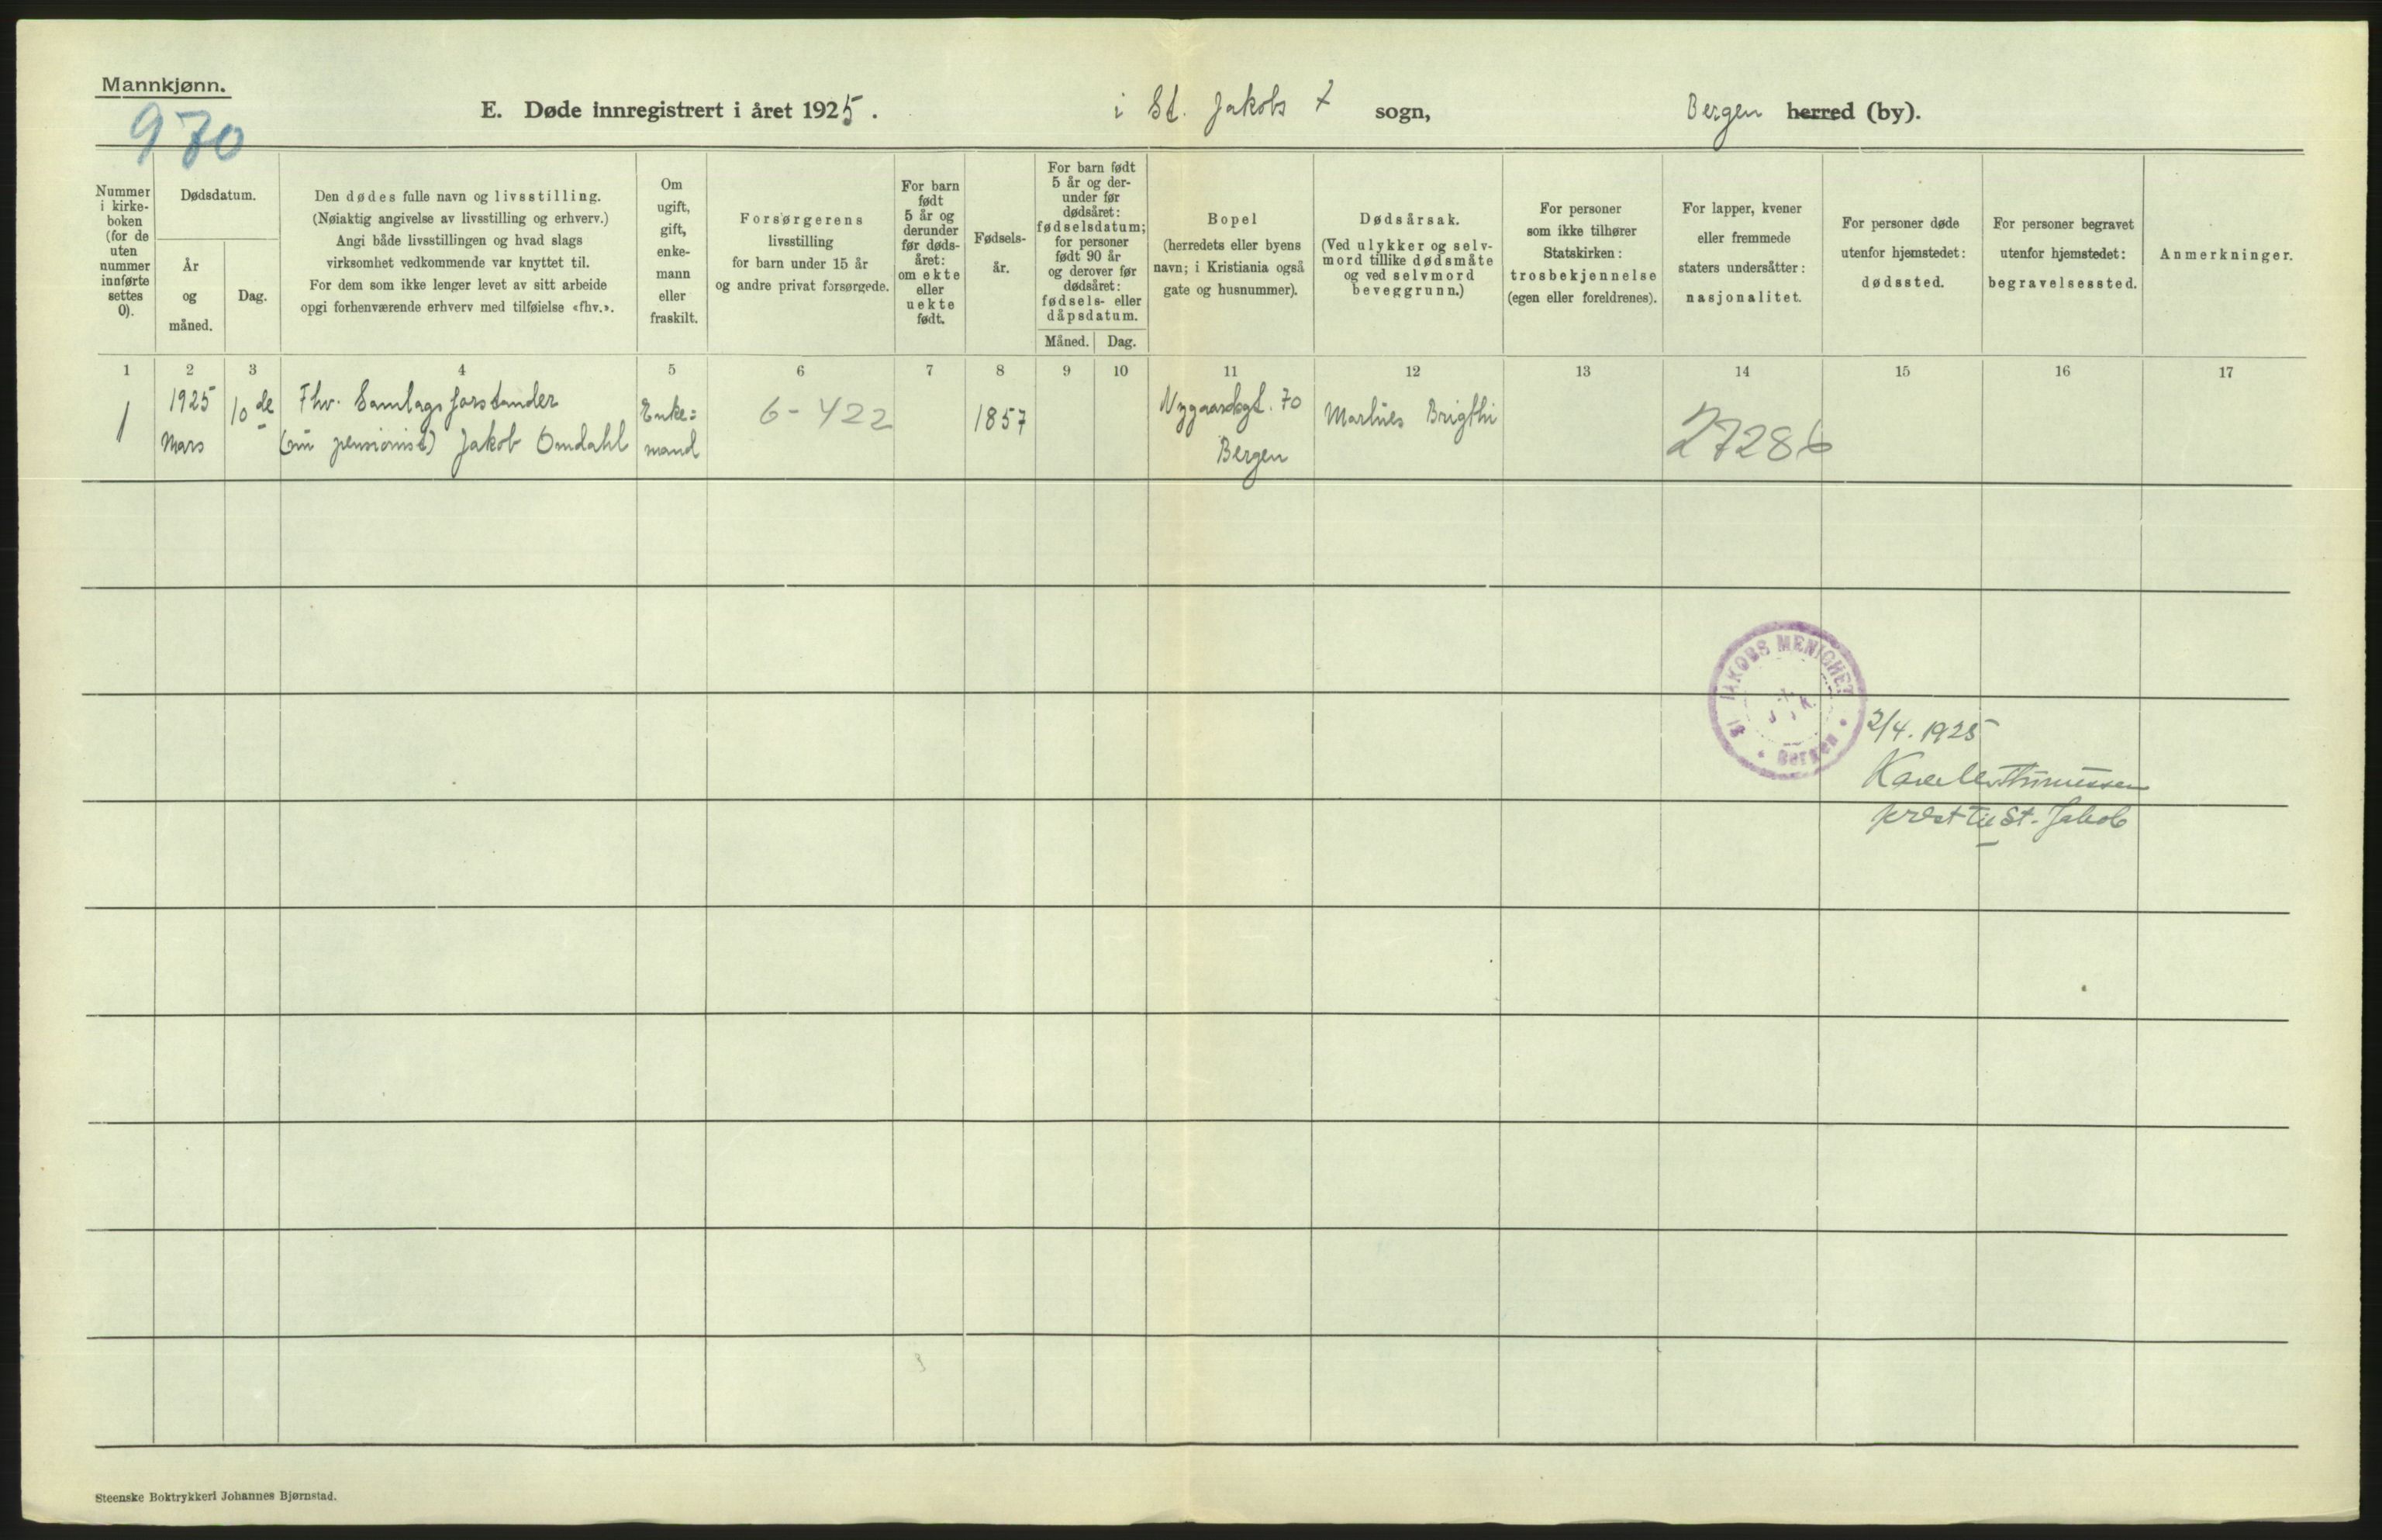 Mannkjønn.
970
E. Døde innregistrert i året 1925.
i St. Jakobs sogn,
Bergen herred (by).
Nummer
i kirke-
boken
(for de
uten
nummer
innførte
settes
0).
Dødsdatum.
År
og
måned.
Dag.
Den dødes fulle navn og livsstilling.
(Nøiaktig angivelse av livsstilling og erhverv.)
Angi både livsstillingen og hvad slags
virksomhet vedkommende var knyttet til.
For dem som ikke lenger levet av sitt arbeide
opgi forhenværende erhverv med tilføielse «fhv.».
Om
ugift,
gift,
enke-
mann
eller
fraskilt.
Forsørgerens
livsstilling
for barn under 15 år
og andre privat forsørgede.
For barn
født
5 år og
derunder
før døds-
året:
om ekte
eller
uekte
født.
Fødsels-
år.
For barn født
5 år og der-
under før
dødsåret:
fødselsdatum;
for personer
født 90 år
og derover før
dødsåret:
fødsels- eller
dåpsdatum.
Måned.
Dag.
Bopel
(herredets eller byens
navn; i Kristiania også
gate og husnummer).
Dødsårsak.
(Ved ulykker og selv-
mord tillike dødsmåte
og ved selvmord
beveggrunn.)
For personer
som ikke tilhører
Statskirken:
trosbekjennelse
(egen eller foreldrenes).
For lapper, kvener
eller fremmede
staters undersåtter:
nasjonalitet.
For personer døde
utenfor hjemstedet:
dødssted.
For personer begravet
utenfor hjemstedet:
begravelsessted.
Anmerkninger.
1 2 3 4 5 6 7 8 9 10 11 12 13 14 15 16 17
1
1925
Mars
10de
Fhv. Samlagsforstander
(nu pensionist) Jakob Omdahl
Enke=
mand
6-422
1857
Nygaardsgt. 70
Bergen
Morbus Brigthi
27286
ST JAKOBS MENIGHET
Bergen
2/4. 1925
prest til St. Jakob
Steenske Boktrykkeri Johannes Bjørnstad.